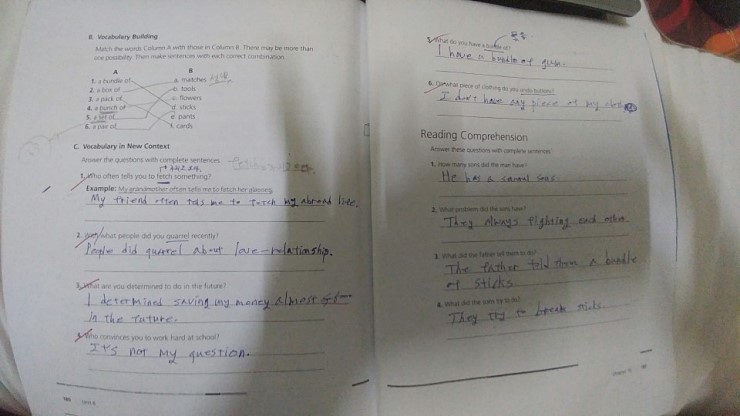 B. Vocabulary Building
Match the words Column A with those in Column B. There may be more than
one possibility. Then make sentences with each correct combination.
A B
1. a bundle of a. matches
2. a box of b. tools
3. a pack of c. flowers
4. a bunch of d. sticks
5. a set of e. pants
6. a pair of f. cards
C. Vocabulary in New Context
Answer the questions with complete sentences.
1. Who often tells you to fetch something?
Example: My grandmother often tells me to fetch her glasses.
My friend often tells me to fetch my abroad life.
2. what people did you quarrel recently?
People did quarrel about love-relationship.
3. What are you determined to do in the future?
I determined saving my money almost
in the future.
4. Who convinces you to work hard at school?
It's not my question.
Unit 8
5. What do you have a bundle of?
I have a bundle of gum.
6. what piece of clothing do you unbutton?
I don't have any piece of my
Reading Comprehension
Answer these questions with complete sentences.
1. How many sons did the man have?
He has a several sons.
2. What problem did the sons have?
They always fighting each other.
3. What did the father tell them to do?
The father told them a bundle
of sticks.
4. What did the sons try to do?
They try to break sticks.